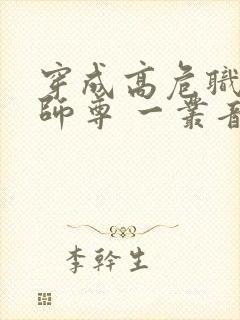 穿成高危職
師尊 一叢音
李幹生